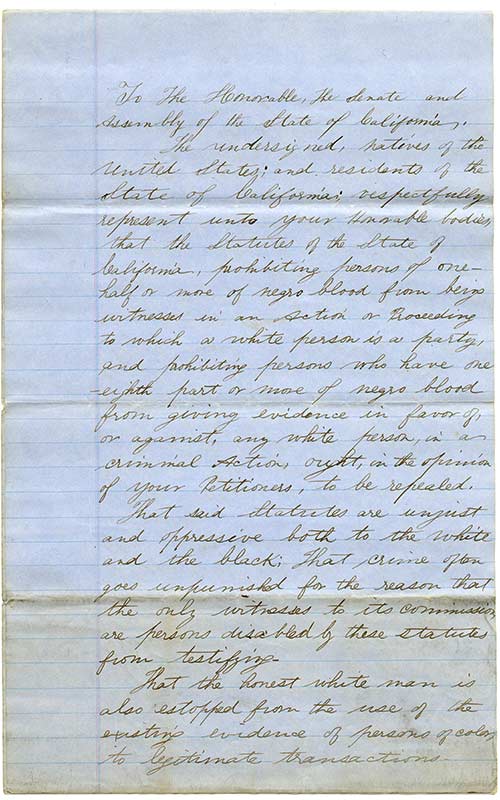 To The Honorable, the Senate and
Assembly of the State of California,
The undersigned, natives of the
United States; and residents of the
State of California; respectfully
represent unto your Honorable bodies,
that the Statutes of the State of
California, prohibiting persons of one-
half or more of negro blood from being
witnesses in an Action or Proceeding
to which a white person is a party,
and prohibiting persons who have one
-eighth part or more of negro blood
from giving evidence in favor of,
or against, any white person, in a
criminal Action, ought, in the opinion
of your Petitioners, to be repealed.
That said Statutes are unjust
and oppressive both to the white
and the black; That crime often
goes unpunished for the reason that
the only witnesses to its commission,
are persons disabled by these statutes
from testifying-
That the honest white man is
also estopped from the use of the
existing evidence of persons of color,
to legitimate transactions-